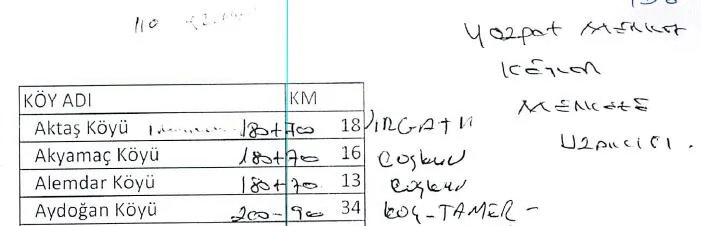 110
Yozpat MERKEZ
KÖYLER
MERKEZE
UZAKLIĞI.
KÖY ADI KM
Aktaş Köyü 180+700 18 IRGATN
Akyamaç Köyü 180+70 16 Coşkun
Alemdar Köyü 180+70 13 Coşkun
Aydoğan Köyü 200-90 34 KOÇ-TAMER-